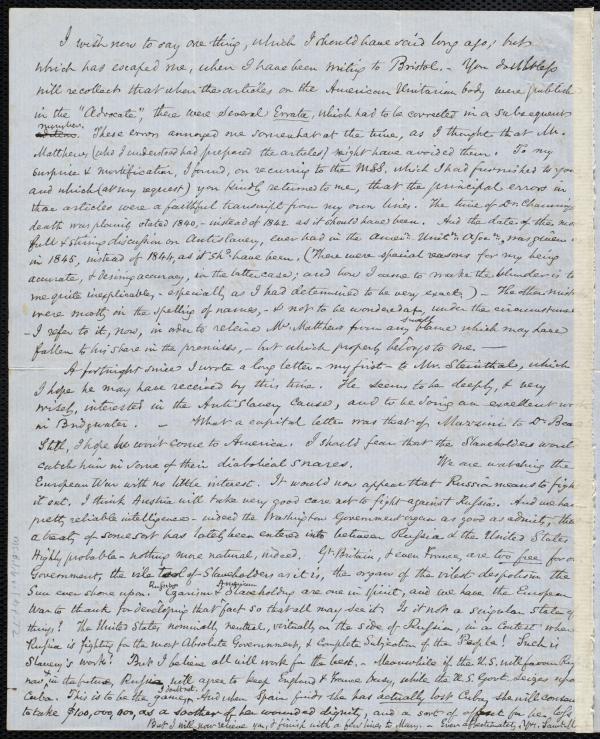 I wish now to say one thing, which I should have said long ago; but
which has escaped me, when I have been writing to Bristol. - You doubtless
will recollect that when the articles on the American Unitarian body were publish
in the "Advocate", there were several Errata, which had to be corrected in a subsequent
number. These errors annoyed me somewhat at the time, as I thought that Mr.
Matthews, (who I understood had prepared the articles) might have avoided them. To my
surprise & mortification, I found, on recurring to the MSS. which I had furnished to you
and which (at my request) you kindly returned to me, that the principal errors in
those articles were a faithful transcript from my own lines. The time of Dr. Channing's
death was plainly stated 1840, - instead of 1842 as it should have been. And the date of the
full & strong discussion on Antislavery, ever had in the Amern. Unitn. Assn., was given
in 1845, instead of 1844, as it shd. have been. (There were special reasons for my being
accurate, & desiring accuracy, in the latter case; and how I came to make the blunder is to
me quite inexplicable, - especially as I had determined to be very exact.) - The other
were mostly in the spelling of names, - & not to be wondered at, under the circumstances
- I refer to it, now, in order to relieve Mr. Matthews from any small blame which may have
fallen to his share in the premises, - but which properly belongs to me. -
A fortnight since I wrote a long letter - my first - to Mr. Steinthal, which
I hope he may have received by this time. He seems to be deeply, & very
wisely, interested in the Anti Slavery Cause, and to be doing an excellent work
in Bridgwater. - What a capital letter was that of Mazzini to Dr. Bea
Still, I hope he won't come to America. I should fear that the Slaveholders would
catch him in some of their diabolical snares. We are watching the
European War with no little interest. It would now appear that Russia means to fight
it out. I think Austria will take very good care not to fight against Russia. And we have
pretty reliable intelligence - indeed the Washington Government organ as good as admits, - that
a treaty of some sort has lately been entered into between Russia & the United States
Highly probable - nothing more natural, indeed. Gt. Britain, & even France, are too free for our
Government, the vile tool of Slaveholders as it is, the organ of the vilest despotism the
Sun ever shone upon. Russian Czarism & American Slaveholding are one in spirit, and we have the European
War to thank for developing that fact so that all may see it. Is it not a singular state of
things? The United States, nominally neutral, virtually on the side of Russia, in a contest where
Russia is fighting for the most Absolute Government, & complete Subjection of the People! Such is
Slavery's work! But I believe all will work for the best. - Meanwhile if the U.S. will favour Rus
now & in the future, Russia will agree to keep England & France busy, while the U.S. Govt. seizes upon
Cuba. This is to be the game, I doubt not. And when Spain finds she has actually lost Cuba, she will consent
to take $100,000,000, as a soother of her wounded dignity, and a sort of offset for her loss
But I will now relieve you, & finish with a few lines to Mary. - Ever affectionately, Yrs. Saml.